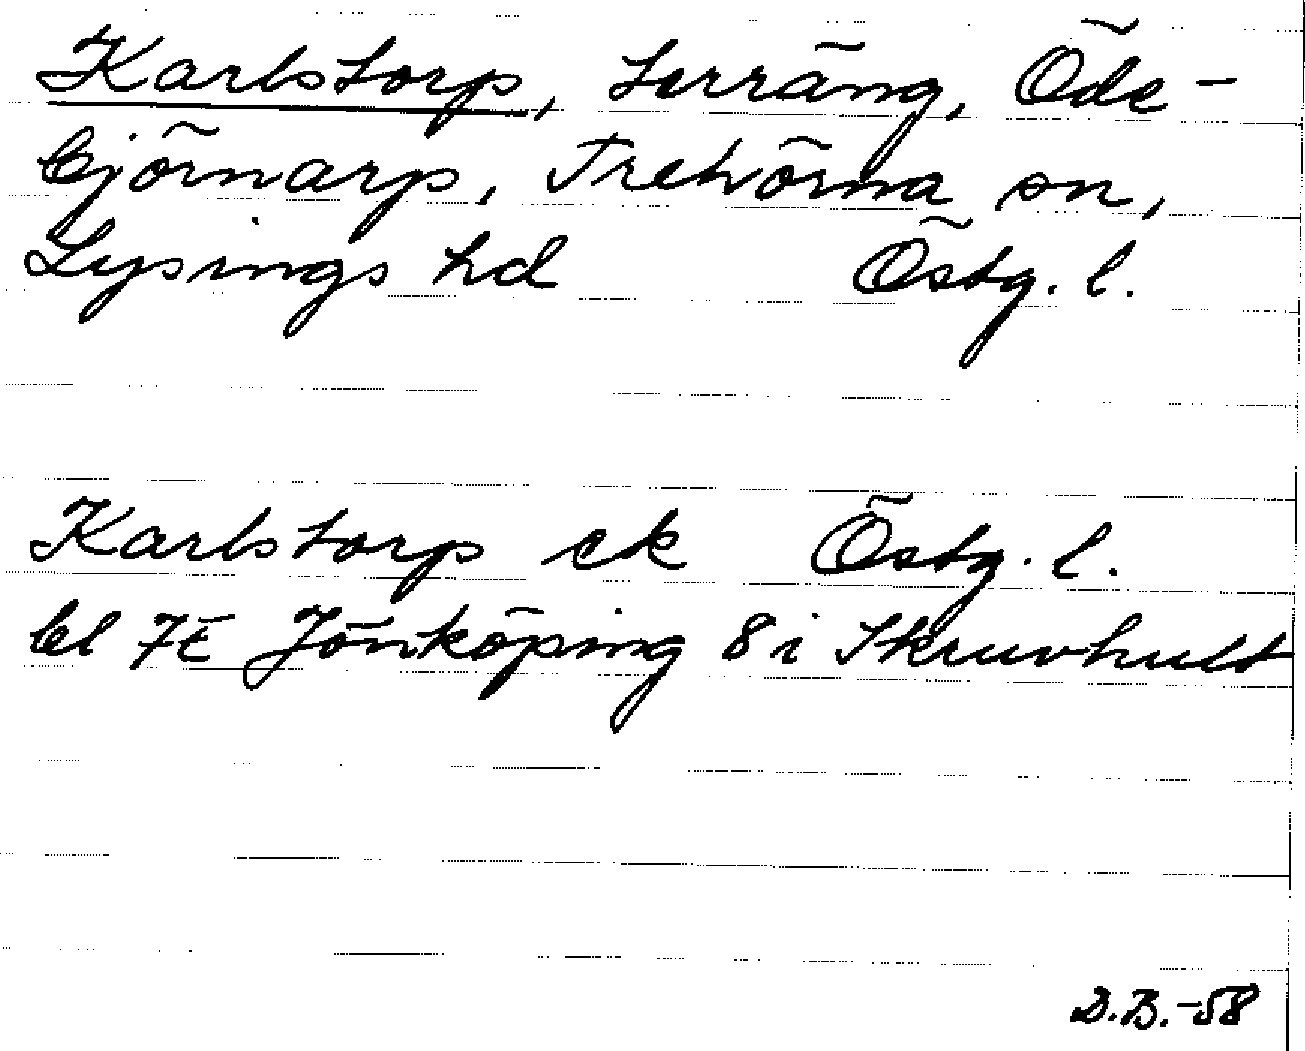 Karlstorp, terräng, Öde-
björnarp, Trehörna sn,
Lysings hd Östg. l.
Karlstorp ek Östg. l.
bl 7E Jönköping 8 i Skruvhult
D.B.-58